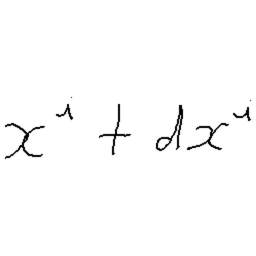 x^i + dx^i